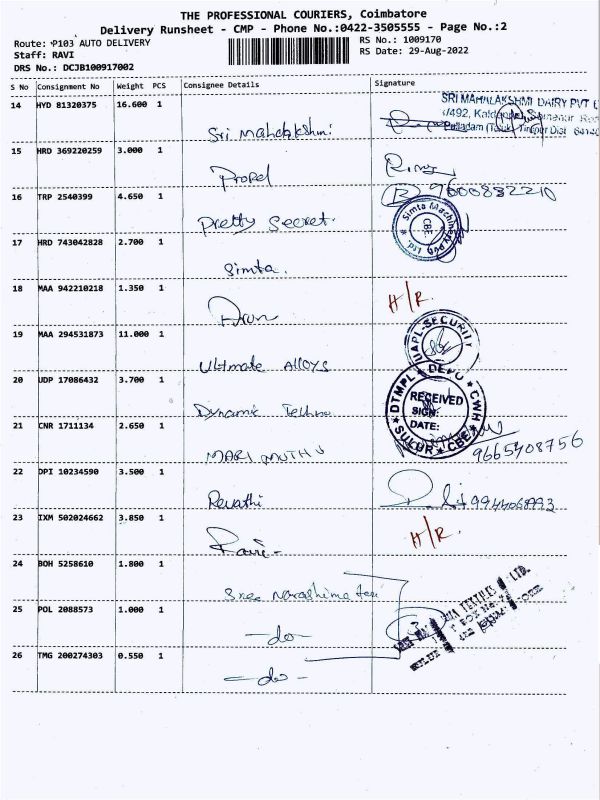 THE PROFESSIONAL COURIERS, Coimbatore
Delivery Runsheet - CMP - Phone No.:0422-3505555 - Page No.:2
Route: P103 AUTO DELIVERY
RS No.: 1009170
Staff: RAVI
RS Date: 29-Aug-2022
DRS No.: DCJB100917002
S No Consignment No Weight PCS Consignee Details Signature
14 HYD 81320375 16.600 1
Sri Mahalakshmi
SRI MAHALAKSHMI DAIRY PVT
Palladam (Taluk), Tirupur Dist
15 HRD 369220259 3.000 1
Propel
16 TRP 2540399 4.650 1
Pretty Secret.
9600832210
17 HRD 743042828 2.700 1
Simta.
Simta Machinery Pvt Ltd.
CBE.
18 MAA 942210218 1.350 1
Arun
H/R.
19 MAA 294531873 11.000 1
Ultimate Alloys
UAPL-SECURITY
20 UDP 17086432 3.700 1
Dynamic Techno
DTMPL DEPO CWH
RECEIVED
SIGN:
DATE:
SULUR CBE
21 CNR 1711134 2.650 1
MARI MUTHU
9665408756
22 DPI 10234590 3.500 1
Revathi
23 IXM 502024662 3.850 1
Ravi-
H/R.
24 BOH 5258610 1.800 1
Sree Narashima Tex
25 POL 2088573 1.000 1
-do-
TEXTILES
LTD.
26 TMG 200274303 0.550 1
-do-